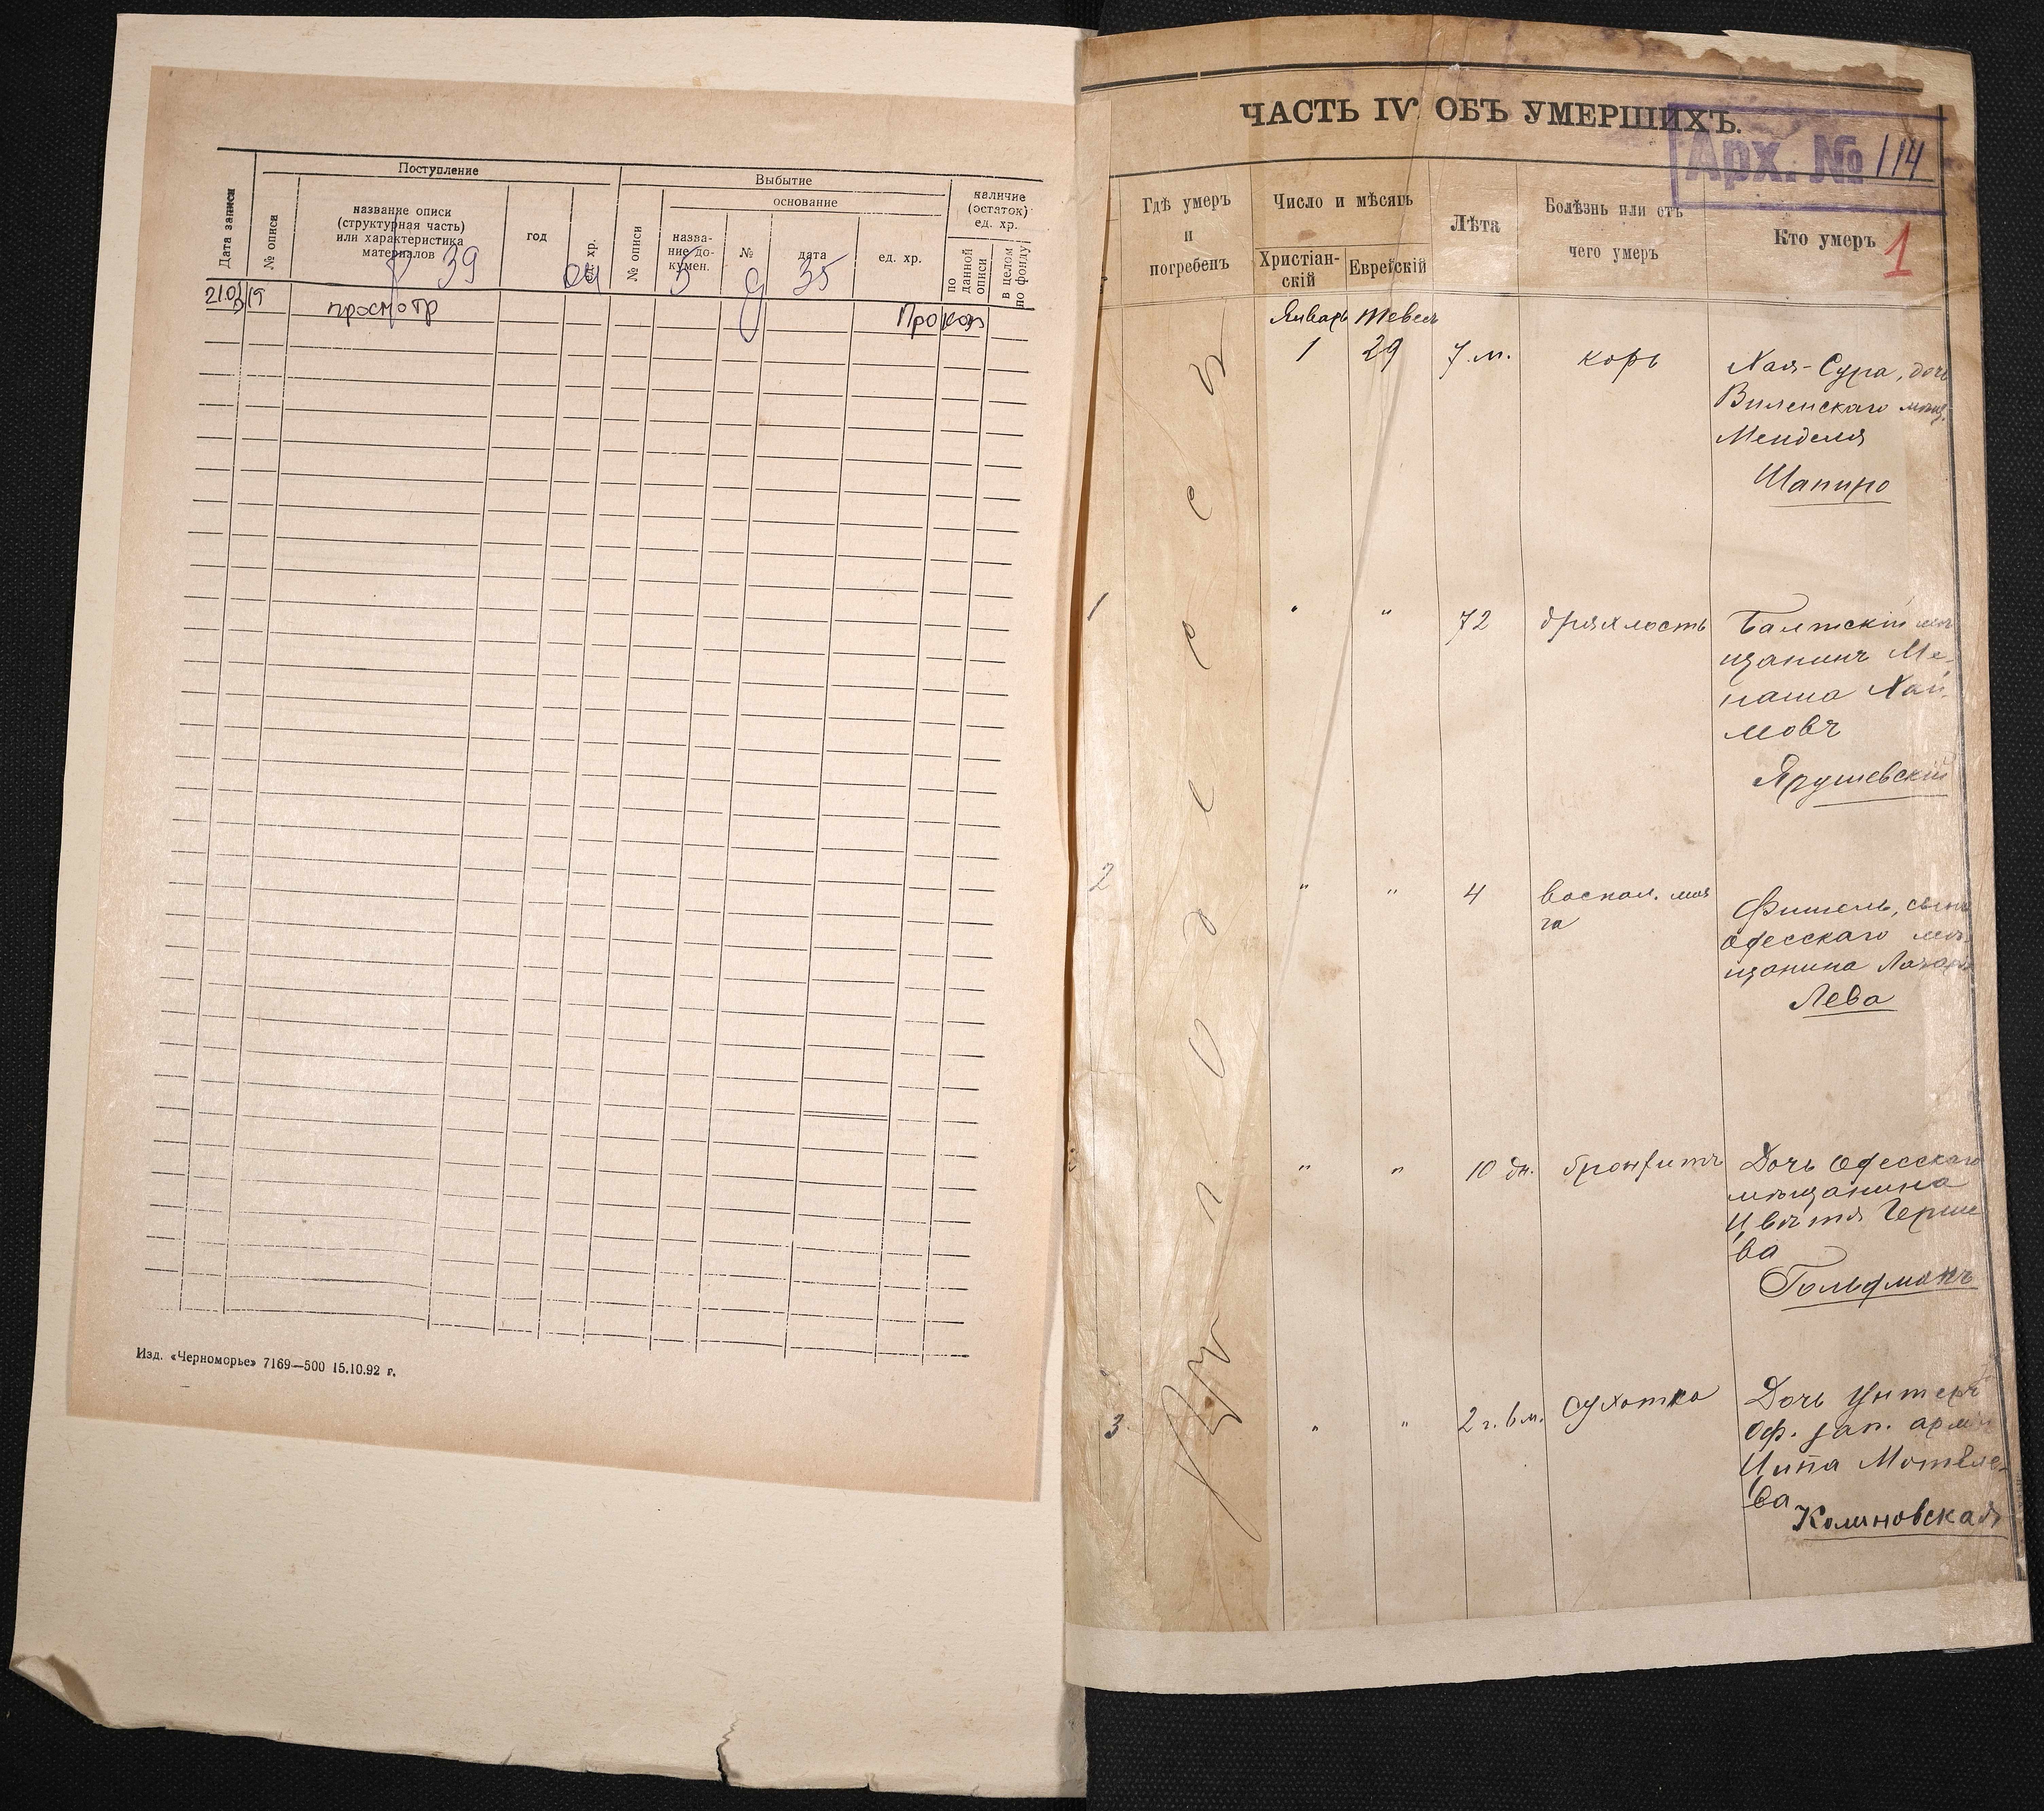 Поступление
Выбытие
основание
наличие
(остаток)
ед. хр.
Дата записи
№ описи
название описи
(структурная часть)
или характеристика
материалов
год
ед. хр.
№ описи
назва-
ние до-
кумен.
№
дата
ед. хр.
по данной описи
в целом по фонду
Р 39 04 5 9 35
просмотр
Изд. «Черноморье» 7169—500 15.10.92 г.
ЧАСТЬ IV. ОБЪ УМЕРШИХЪ.
Арх. № 114
Гдѣ умеръ
и
погребенъ
Число и мѣсяцъ
Христіан-
скій
Еврейскій
Лѣта
Болѣзнь или отъ
чего умеръ
Кто умеръ
1
Январь Тевесъ
1 29 7 м. корь
Хая-Сура, дочь
Виленскаго мѣщ.
Менделя
Шапиро
1 " " 72 дряхлость
Балтскій мѣ-
щанинъ Ме-
наша Хаи-
мовъ
Ярушевскій
2 " " 4 воспал. моз
га
Фишель, сынъ
Одесскаго мѣ-
щанина
Лева
" " 10 дн. бронхитъ
Дочь Одесскаго
мѣщанина
Герше
ва
Гольдманъ
3 " " 2 г. 6 м. Сухотка
Дочь Унтеръ
Оф. зап. арміи
Ципа Мотеле-
ва
Калиновская
Одессѣ